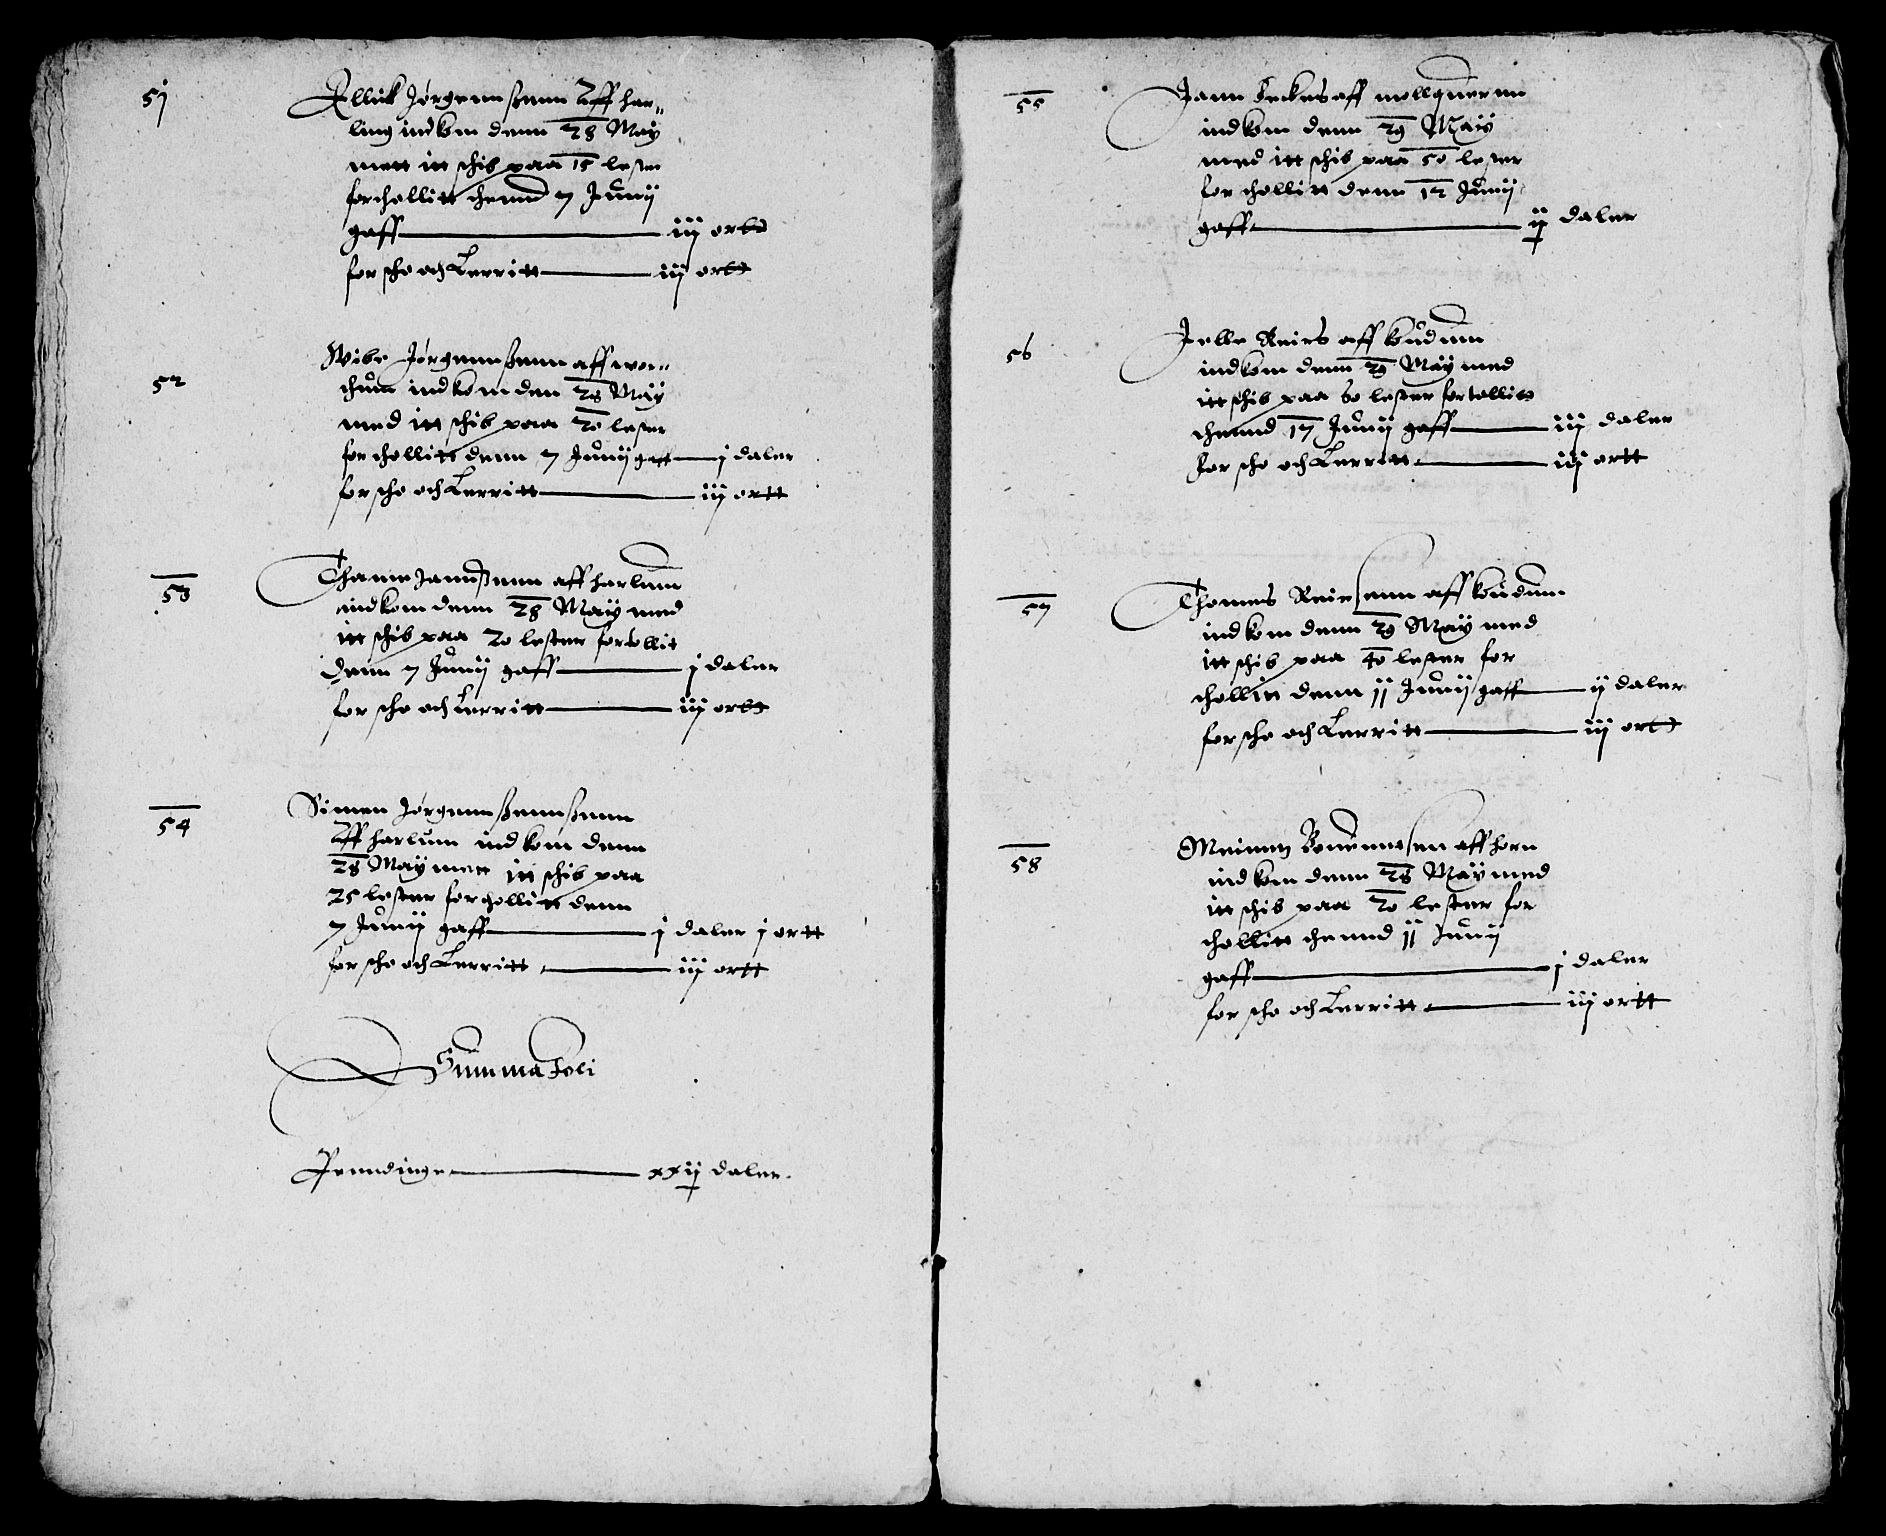 51
Allick Jørgennßenn Aff har„
ling indkom denn 28 May
mett itt schib paa 15 lester
forthollitt thennd 7 Junij
gaff iij ortt
for scho och Lerritt iij ortt
52
Wibe Jørgennßenn aff wor„
chum indkom den 28 May
med itt schib paa 20 lester
forthollitt denn 7 Junij gaff j daler
for scho och Lerritt iij ortt
53
Thame Jannßenn aff harlum
indkom denn 28 May med
itt schib paa 20 lester fortollit
denn 7 Junij gaff j daler
for scho och Lerritt iij ortt
54
Simen Jørgennßennßenn
Aff harlum indkom denn
28 May mett itt schib paa
25 lester forthollitt denn
7 Junij gaff j daler j ortt
for scho och Lerritt iij ortt
Summa Foli
Penndinge xxij daler.
55
Jann Feckes aff mollquernn
indkom denn 29 May
med itt schib paa 50 lester
for thollitt denn 12 Junij
gaff ij daler
56
Jelle Reirs aff koudum
indkom denn 29 May med
itt schib paa 60 lester fortollitt
thennd 17 Junij gaff iij daler
for scho och Lerritt iij ortt
57
Thomes Reirsenn aff koudum
indkom denn 29 May med
itt schib paa 40 lester for
thollitt denn 11 Junij gaff ij daler
for scho och Lerritt iij ortt
58
Meinert aff horn
indkom denn 28 May med
itt schib paa 20 lester for
thollitt thennd 11 Junij
gaff j daler
for scho och Lerritt iij ortt